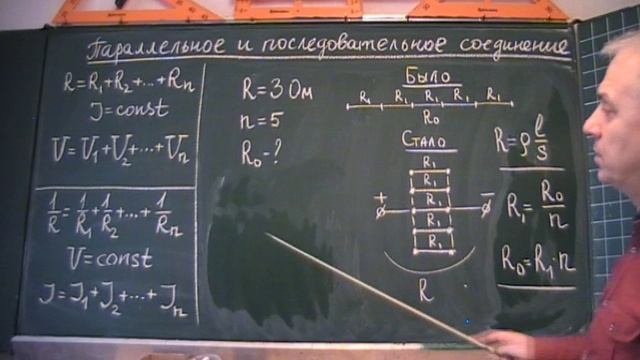 Параллельное и последовательное соединение
R=R₁+R₂+...+Rₙ
J=const
U=U₁+U₂+...+Uₙ
1/R=1/R₁+1/R₂+...+1/Rₙ
U=const
J=J₁+J₂+...+Jₙ
R=3 Ом
n=5
R₀-?
Было
R₁ R₁ R₁ R₁ R₁
R₀
Стало
R₁
R₁
R₁
+ R₁ −
R₁
R₁
R
R=ρ l/S
R₁=R₀/n
R₀=R₁·n